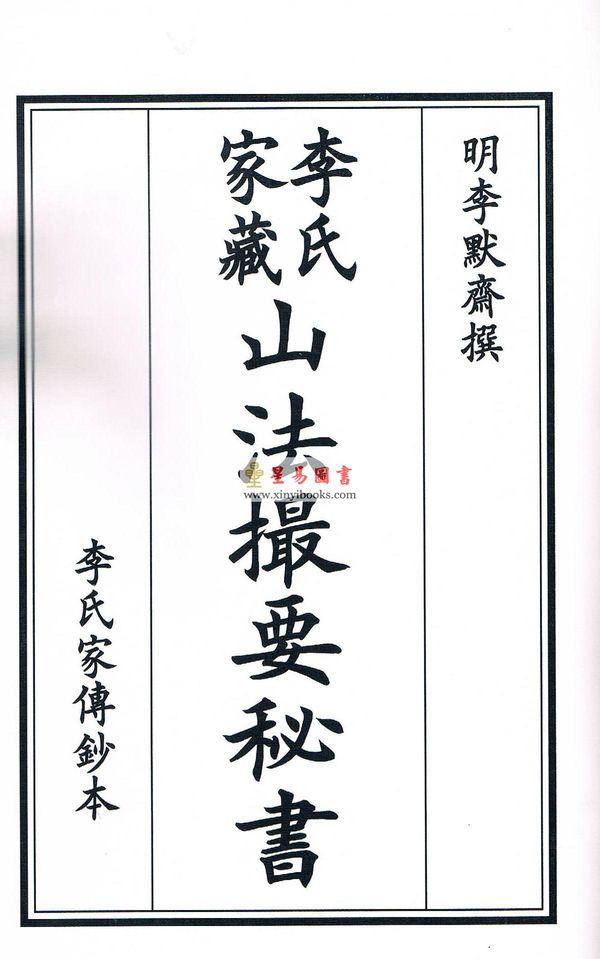 明李默齋撰
李氏
家藏
山法撮要秘書
李氏家傳鈔本
星易圖書
www.xinyibooks.com